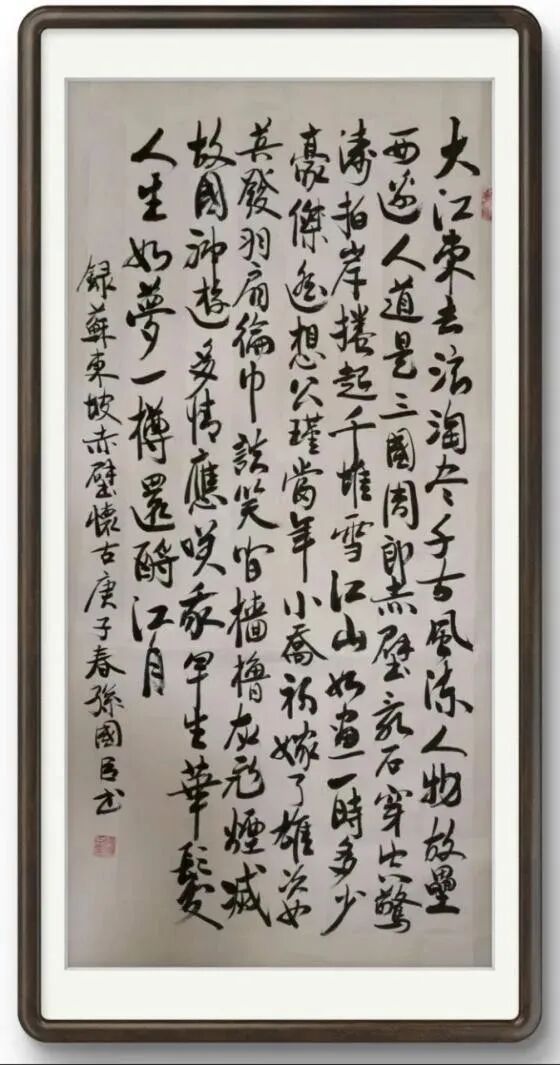 大江東去浪淘尽千古風流人物故壘
西邊人道是三國周郎赤壁乱石穿空驚
濤拍岸捲起千堆雪江山如畫一時多少
豪傑遙想公瑾當年小喬初嫁了雄姿
英發羽扇綸巾談笑间檣櫓灰飛煙滅
故國神遊多情應咲我早生華髮
人生如夢一樽還酹江月
録蘇東坡赤壁懷古庚子春孫國书